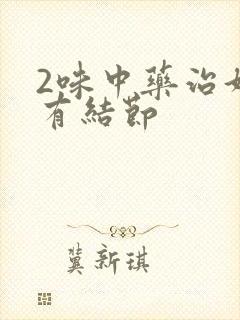 2味中藥治
有結節
冀新琪